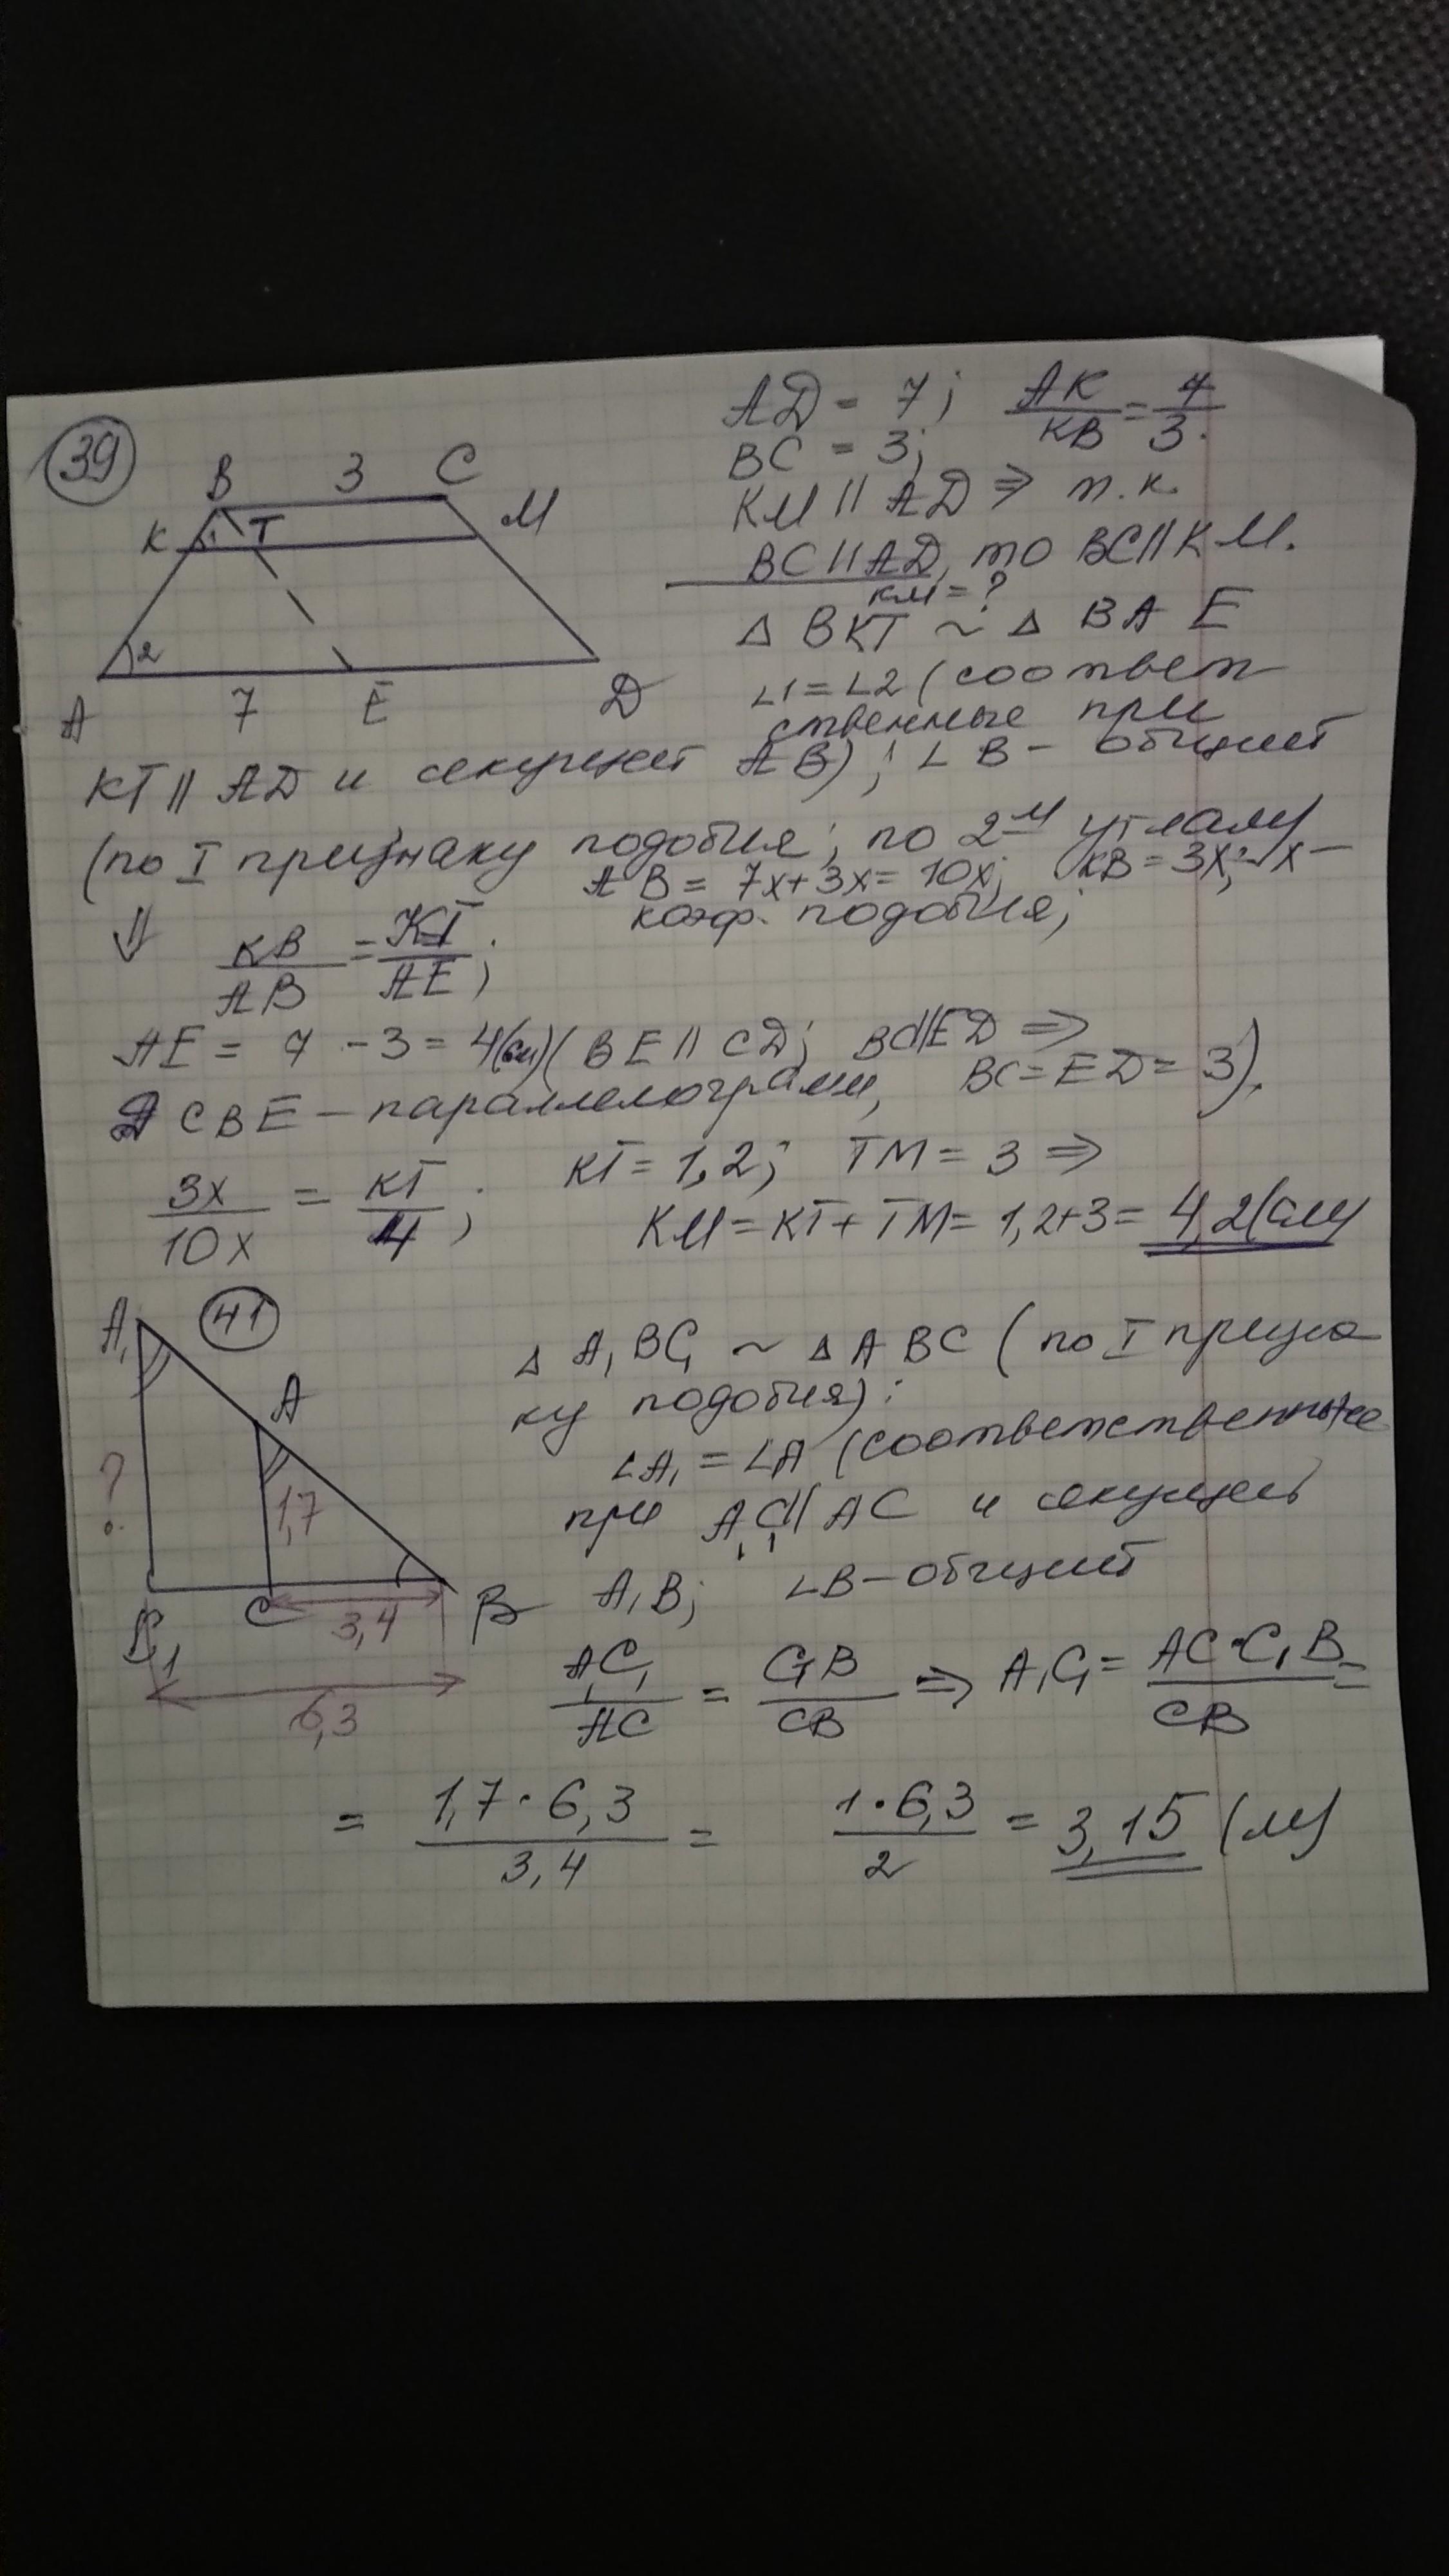 39
B 3 C
K 1 T M
2
A 7 E D
AD = 7; AK/KB = 7/3.
BC = 3;
KM || AD ⇒ т.к.
BC || AD, то BC || KM.
KM = ?
△ BKT ~ △ BAE
∠1 = ∠2 (соответ
ственные при
KT || AD и секущей AB); ∠B - общий
(по I признаку подобия; по 2м углам)
AB = 7x + 3x = 10x; KB = 3x; x -
коэф. подобия;
⇓ KB/AB = KT/AE;
AE = 7 - 3 = 4(см) (BE || CD; BC || ED ⇒
DCBE - параллелограмм, BC = ED = 3).
3x/10x = KT/4; KT = 1,2; TM = 3 ⇒
KM = KT + TM = 1,2 + 3 = 4,2 (см)
41
A₁
A
? 1,7
C₁ C 3,4 B
6,3
△ A₁BC₁ ~ △ ABC (по I призна
ку подобия):
∠A₁ = ∠A (соответственные
при A₁C₁ || AC и секущей
A₁B; ∠B - общий
A₁C₁/AC = C₁B/CB ⇒ A₁C₁ = AC · C₁B/CB =
= 1,7 · 6,3/3,4 = 1 · 6,3/2 = 3,15 (м)